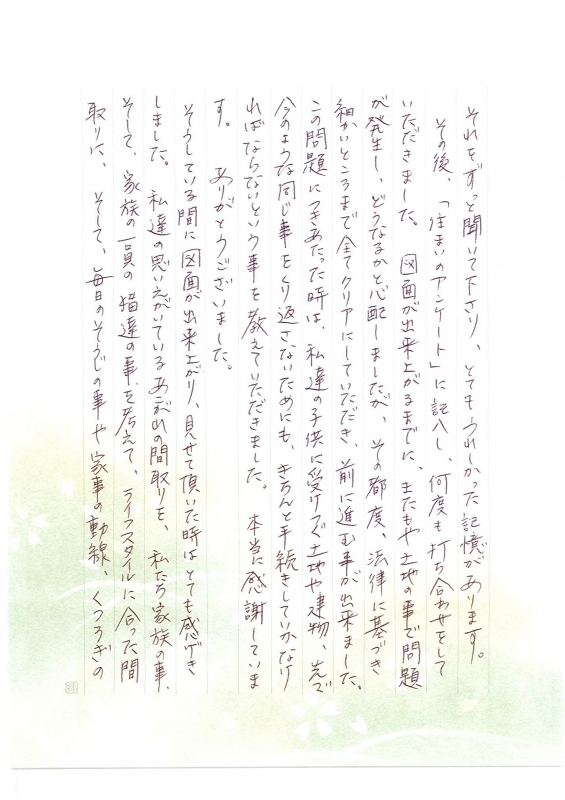 それをずっと聞いて下さり、とてもうれしかった記憶があります。
その後、「住まいのアンケート」に記入し、何度も打ち合わせをして
いただきました。図面が出来上がるまでに、またもや土地の事で問題
が発生し、どうなるかと心配しましたが、その都度、法律に基づき
細かいところまで全てクリアにしていただき、前に進む事が出来ました。
この問題につきあたった時は、私達の子供に受けつぐ土地や建物、先で
今のような同じ事をくり返さないためにも、きちんと手続きしていかなけ
ればならないという事を教えていただきました。本当に感謝していま
す。ありがとうございました。
そうしている間に図面が出来上がり、見せて頂いた時はとても感げき
しました。私達の思いえがいているあこがれの間取りを、私たち家族の事、
そして、家族の一員の猫達の事を考えて、ライフスタイルに合った間
取りに、そして、毎日のそうじの事や家事の動線、くつろぎの